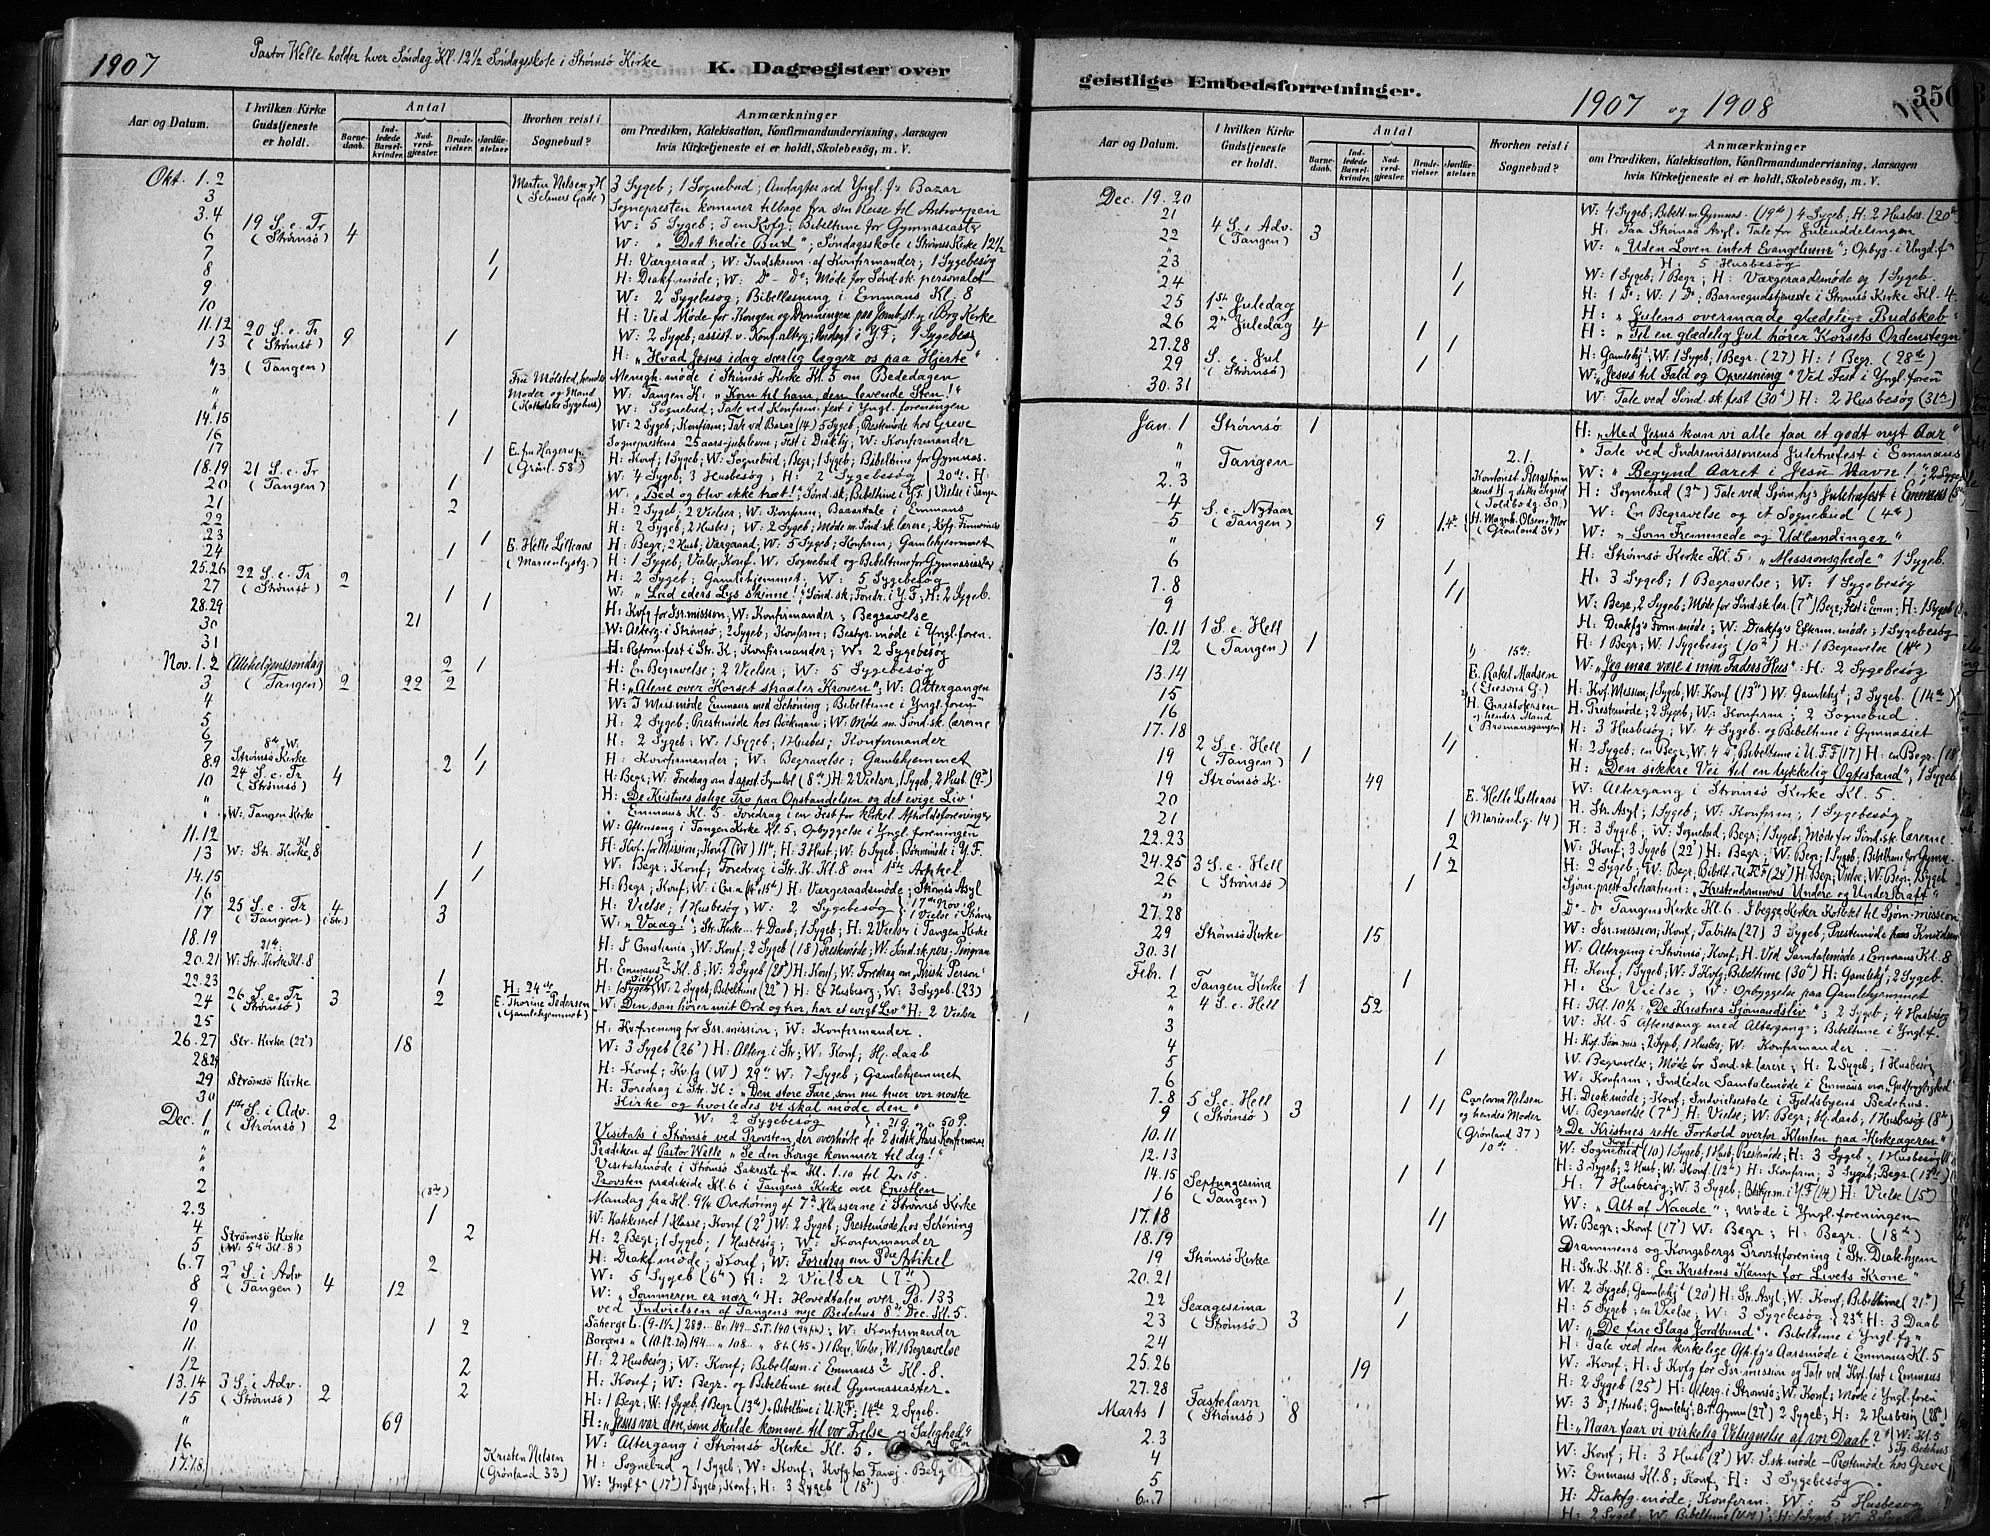 1907
Pastor Welle holder hver Søndag Kl. 12½ Søndagsskole i Strømsø Kirke
K. Dagregister over
Aar og Datum.
I hvilken Kirke Gudstjeneste er holdt.
Antal
Barnedaab.
Indledede Barselkvinder.
Nadverdgjester.
Brudevielser.
Jordfæstelser.
Hvorhen reist i Sognebud?
Anmærkninger
om Prædiken, Katekisation, Konfirmandundervisning, Aarsagen
hvis Kirketjeneste ei er holdt, Skolebesøg, m. V.
Okt. 1.2 Martin Nilsen, H (Selmers Gade) 3 Sygeb; 1 Sognebud; Andagter ved Yngl. f's Bazar
3 Sognepresten kommer tilbage fra sin Reise til Antwerpen
3.4 19 S. e. Tr W: 5 Sygeb; I en Kvfg; Bibeltime for Gymnasiaster
6 (Strømsø) 4 W: "Det tredie Bud"; Søndagsskole i Strømsø Kirke 12½
7 1 H: Værgeraad; W: Indskrivn. af Konfirmander; 1 Sygebesøg
8 1 H: Diakf.møde; W: Do - Do; Møde for Sønd.sk.personalet
9 W: 2 Sygebesøg; Bibellæsning i Emmaus Kl. 8
10 H: Ved Møde for Kongen og Dronningen paa Jernb.st. og i Brg. Kirke
11.12 20 S. e. Tr 1 W: 2 Sygeb; assist. v. Konf.
13 (Strømsø) 9 H: "Hvad Jesus idag særlig lægger os paa Hjerte"
13 (Tangen) Fru Mølsted, hendes Moder og Mand (Katholske Sygehus) Menigh.møde i Strømsø Kirke Kl. 5 om Bededagen
" W: Tangen K: "Kom til ham, den levende Sten!"
" W: Sognebud; Tale ved Konfirm.fest i Yngl. foreningen
14.15 1 W: 2 Sygeb; Konfirm; Tale ved Bazar (14) 5 Sygeb; Prestemøde hos Greve
16 Sogneprestens 25 aars-jubilæum; Fest i Diakhj; W: Konfirmander
17 1 E. fru Hagerup (Grønl. 53) H: Konf; 1 Sygeb; W: Sognebud; Begr; 1 Sygeb; Bibeltime for Gymnas.
18.19 21 S. e. Tr W: 4 Sygeb; 3 Husbesøg; H: 2 Sygebesøg 20de: H:
20 (Tangen) 1 W: "Bed og bliv ikke træt!"; Sønd.sk; Bibeltime i Y.F. Vielse i Tangen
21 2 H: 2 Sygeb; 2 Vielser; W: Konfirm; Bazartale i Emmaus
22 H: 2 Sygeb; 2 Husbes; W: 2 Sygeb; Møde m. Sønd.sk. lærere
23 1 H: Begr; 2 Husb; Værgeraad; W: 5 Sygeb; Konfirm; Gamlehjemmet
24 1 E. Helle Lilleaas (Marienlystg.) H: 1 Sygeb; Vielse; Konf. W: Sognebud og Bibeltime for Gymnasiaster
25.26 22 S. e. Tr 2 H: 2 Sygeb; Gamlehjemmet; W: 5 Sygebesøg
27 (Strømsø) 1 W: "Lad eders Lys skinne!" Sønd.sk; Foredr. i Y.F; H: 2 Sygeb.
28.29 1 H: Kvfg for Isr.mission, W: Konfirmander; Begravelse
30 21 W: Alterg. i Strømsø; 2 Sygeb; Konfirm; Bestyr.møde i Yngl. foren.
31 H: Reform.fest i Str. K; Konfirmander; W: 2 Sygebesøg
Nov. 1.2 Allehelgenssøndag 2 1 H: En Begravelse; 2 Vielser; W: 5 Sygebesøg
3 (Tangen) 2 22 2 H: "Alene over Korset straaler Kronen"; W: Altergangen
4 W: I Miss.møde Emmaus med Schøning; Bibeltime i Yngl. foren
5 H: 2 Sygeb; Prestemøde hos Bøckman; W: Møde m. Sønd.sk. lærerne
6
7 H: 2 Sygeb; W: 1 Sygeb; 1 Husbes; Konfirmander
8.9 8de W. Strømsø Kirke 2 1 H: Konfirmander; W: Begravelse; Gamlehjemmet
10 24 S. e. Tr (Strømsø) 4 H: Begr; W: Foredrag om d. apost. Symbol (8de) H: 2 Vielser, 1 Sygeb, 2 Husb (9de)
H: "De Kristnes salige Tro paa Opstandelsen og det evige Liv"
" W: Tangen Kirke " Emmaus Kl. 5. Foredrag i en Fest for kirkel. Afholdsforening
11.12 W: Aftensang i Tangen Kirke Kl. 5, Opbyggelse i Yngl. foreningen
13 W: Str. Kirke Kl. 8 1 H: Kvf. for Mission; Konf (W) 11te; H: 3 Husb; W: 6 Sygeb; Børnemøde i Y.F.
14.15 W: Begr; Konf; Foredrag i Str. K. Kl. 8 om 1ste Artikel
16 1 H: Begr; Konf; W: H: Værgeraadsmøde; Strømsø Asyl
17 25 S. e. Tr (Tangen) 4 (Str.) 3 H: Vielse; 1 Husbesøg; W: 2 Sygebesøg 17de Nov: 1 Vielse i Strømsø
18.19 W: "Vaag!"; Str. Kirke... 4 Daab, 1 Sygeb; H: 2 Vielser i Tangen Kirke
20.21 21de: W: Str. Kirke Kl. 8 H: I Cristiania; W: Konf; 2 Sygeb (18) Prestemøde; W: Sønd.sk. pers.
22.23 1 H: Emmaus Kl. 8; W: 2 Sygeb (20de) H: Konf; W: Foredrag om "Kristi Person"
24 26 S. e. Tr (Strømsø) 3 2 H: 24de E. Thorine Pedersen (Gamlehjemmet) H: 1 Sygeb, W: 2 Sygeb; Bibeltime (22de) H: 8 Husbesøg; W: 3 Sygeb. (23)
25 W: "Den, som hører mit Ord og tror, har et evigt Liv" H: 2 Vielser
H: Kvforening for Isr.mission; W: Konfirmander.
26.27 Str. Kirke (27de) 18 W: 3 Sygeb (26de) H: Alterg. i Str; W: Konf; Hj.daab
28.29 H: Konf; Kvfg (W) 29de W: 7 Sygeb; Gamlehjemmet
29 Strømsø Kirke H: Foredrag i Str. K: "Den store Fare, som nu truer vor norske
30 Kirke og hvorledes vi skal møde den"
Dec. 1 1ste S. i Adv. (Strømsø) 2 W: 2 Sygebesøg
" Visitats i Strømsø ved Provsten, der overhørte de 2 sidste Aars Konfirmander
" Prædiken af Pastor Welle "Se din Konge kommer til dig!"
" Visitatsmøde i Strømsø Sakristi fra Kl. 1.10 til 2.15.
" Provsten prædikede Kl. 6 i Tangens Kirke over Epistlen
2 Mandag fra Kl. 9¼ Overhøring af 7de Klasserne i Strømsø Kirke
2.3 (3de) 1 W: Kakkeseret 1 Klasse; Konf (2de) W: 2 Sygeb; Prestemøde hos Schöning
4 Strømsø Kirke 2 H: 2 Begr; 1 Sygeb; 1 Husbesøg; W: Konfirmander
5 (W: 5te Kl. 8) H: Diakf.møde; Konf; W: Foredrag om 3die Artikel
6.7 2 S. i Adv 2 W: 5 Sygeb (6te) H: 2 Vielser (7de)
8 (Tangen) 4 12 W: "Sommeren er nær" H: Hovedtalen over Ps. 133
9 ved Indvielsen af Tangens nye Bedehus 8de Dec. Kl. 5.
10 1 2 W: Konfirmander
11 1 Begr, Vielse; W: 1 Begravelse
12 2 H: 2 Husbesøg; W: Konf; Bibellæsn. i Emmaus Kl. 8.
13.14 3 S. i Adv. 2 H: Konf; W: Begr. og Bibeltime med Gymnasiaster.
15 (Strømsø) 2 H: 1 Begr; W: 1 Sygeb, 1 Begr (13de); Bibeltime i U.K.F; 14de 2 Sygeb.
" 69 H: "Jesus var den, som skulde komme til vor Frelse og Salighed"
16 W: Altergang i Strømsø Kirke Kl. 5.
17.18 Kristen Nilsen (Grønland 33) H: Sognebud og 1 Sygeb; W: Konf;
W: Yngl. f (17de) 1 Sygeb; Konf; H: 3 Sygeb (18de)
geistlige Embedsforretninger.
1907 og 1908
350
Aar og Datum.
I hvilken Kirke Gudstjeneste er holdt.
Antal
Barnedaab.
Indledede Barselkvinder.
Nadverdgjester.
Brudevielser.
Jordfæstelser.
Hvorhen reist i Sognebud?
Anmærkninger
om Prædiken, Katekisation, Konfirmandundervisning, Aarsagen
hvis Kirketjeneste ei er holdt, Skolebesøg, m. V.
Dec. 19.20 W: 4 Sygeb; Bibelt. m. Gymnas. (19de) 4 Sygeb; H: 2 Husbes. (20de)
21 4 S. i Adv. H: Paa Strømsø Asyl. Tale for Juleuddelingen
22 (Tangen) 3 W: "Uden Loven intet Evangelium"; Opbyg. i Yngl. f
" H: 5 Husbesøg
23 1 W: 1 Sygeb; 1 Begr; H: Værgeraadsmøde og 1 Sygeb.
24 1 H: 1 Do; W: 1 Do; Barnegudstjeneste i Strømsø Kirke Kl. 4.
25 1ste Juledag H: "Julens overmaade glædelige Budskab"
26 2den Juledag 4 1 H: "Til en glædelig Jul hører Korsets Ordenstegn"
27.28 1 H: Gamlehj; W: 1 Sygeb, 1 Begr. (27) H: 1 Begr. (28de)
29 S. e. Jul (Strømsø) 1 1 W: "Jesus til Fald og Opreisning" Ved Fest i Yngl. foren
30.31 W: Tale ved Sønd.sk.fest (30te) H: 2 Husbesøg (31te)
Jan. 1 Strømsø 1 H: "Med Jesus kan vi alle faa et godt nyt Aar"
" " Tale ved Indremissionens Juletræfest i Emmaus
" Tangen 2.1. W: "Begynd Aaret i Jesu Navn!"; 2 Sygeb.
2.3 Kontorist Bergstrøm samt H og datter Sigrid (Toldbodg. 50) H: Sognebud (3de) Tale ved Sjømhj's Juletræfest i Emmaus
4 S. e. Nytaar W: En Begravelse og et Sognebud (4de)
5 (Tangen) 9 1.4de H. Magnh. Olsen, Mor (Grønland 34) W: "Som Fremmede og Udlændinger"
" H: Strømsø Kirke Kl. 5: "Missionsglæde" 1 Sygeb.
6 1 H: 3 Sygeb; 1 Begravelse; W: 1 Sygebesøg
7.8 11 W: Begr, 2 Sygeb; Møde for Sønd.sk. lær. (7de) Begr; Fest i Emm; H: 1 Sygeb
9 H: Diakfg's Form.møde; W: Diakfg's Efterm. møde; 1 Sygebesøg
10.11 1 S. e. Hell 11 H: 1 Begr; W: 1 Sygebesøg (10de) H: 1 Begravelse (11te)
12 (Tangen) 1 15de: W: "Jeg maa være i min Faders Hus": H: 2 Sygebesøg
13.14 E. Rakel Madsen H: Kvf. Mission, 1 Sygeb; W: Konf (13de) W: Gamlehj; 3 Sygeb. (14de)
15 H. Christofersen og hendes Mand H: Prestemøde; 2 Sygeb; W: Konfirm; 2 Sognebud.
16 H: 3 Husbesøg; W: 4 Sygeb. og Bibeltime i Gymnasiet
17.18 2 S. e. Hell 11 H: 2 Sygeb; en Begr, W: 4 Do; Bibeltime i U.K.F (17) H: en Begr. (18
19 (Tangen) 1 H: "Den sikkre Vei til en lykkelig Egtestand", 1 Sygeb
19 Strømsø K. 49 W: Altergang i Strømsø Kirke Kl. 5.
20 E. Helle Lilleaas (Marienl.g. 14) H: Str. Asyl; 1 Sygeb; W: Konfirm; 1 Sygebesøg
21 1 H: 3 Sygeb; W: Sognebud; Begr; 1 Sygeb; Møde for Sønd.sk. lærerne.
22.23 2 W: Konf; 3 Sygeb (22de) H: Begr; W: Begr; 1 Sygeb; Bibeltime for Gymn.
24.25 3 S. e. Hell 1 2 H: 2 Sygeb; W: Begr. Bibelt. i U.K.F (24de) H: Begr; Vielse; W: Begr, 1 Sygeb
26 (Strømsø) 1 Sjøm.prest Schartum: "Kristendommens Undere og Underkraft"
" Do. Do Tangens Kirke Kl. 6. I begge Kirker Kollekt til Sjøm.mission
27.28 W: Isr.mission; Konf; Tabitta (27) 3 Sygeb; Prestemøde hos Knudsen
29 Strømsø Kirke 15 W: Altergang i Strømsø; Konf; H: Ved Samtalemøde i Emmaus Kl. 8
30.31 H: Konf; 1 Sygeb; W: I Kvfg; Bibeltime (30te) H: Gamlehj; 2 Sygeb.
Febr. 1 1 H: En Vielse; W: Opbyggelse paa Gamlehjemmet
2 Tangen Kirke 1 H: Kl. 10½: "De Kristnes Sjømandsliv"; 2 Sygeb; 4 Husbesøg
" 4 S. e. Hell 52 W: Kl. 5 Aftensang med Altergang; Bibeltime i Yngl. f.
3 H: Kvf. Søm.mis; 2 Sygeb, 1 Husbes; W: Konfirmander
4 W: Begravelse; Møde for Sønd.sk. lærere; H: 2 Sygeb; 1 Husbesøg
5 1 W: Konfirm; Indleder Samtalemøde i Emmaus om "Gudfrygtighed
6 H: Diakmøde; Konf; Indvielsestale i Fjeldsbyens Bedehus.
7.8 5 S. e. Hell 1 11 Carlotta Nilsen og hendes Moder (Grønland 37) 10de W: Begravelse (7de) H: Vielse; W: Begr; Hj.daab, 1 Husbesøg (8de)
9 (Strømsø) 3 "De Kristnes rette Forhold overfor Klinten paa Kirkeageren"
10.11 W: Sognebud (10) 1 Sygeb; 1 Husb, Prestemøde; H: 3 Sygeb; 1 Husbesøg
12.13 H: 3 Sygeb; 2 Husb; W: Konf (12te) H: Konfirm; 3 Sygeb; Begr. (13de)
14.15 Septuagesima 1 1 H: 7 Husbesøg; W: 3 Sygeb; Best.m. i Y.F (14) H: Vielse (15de)
16 (Tangen) W: "Alt af Naade"; Møde i Yngl. foreningen
17.18 11 W: Begr; Konf (17de) W: Begr; H: Begr. (18de)
18.19 Drammens og Kongsbergs Provstiforening i Str. Diak.hjem
19 Strømsø Kirke H: Str. K. Kl. 8: "En Kristens Kamp for Livets Krone"
20.21 W: 2 Sygeb, Gamlehj (20de) H: Str. Asyl; W: Konf; Bibeltime (21de)
22 Sexagesima 1 H: 5 Sygeb; en Vielse; W: 3 Sygebesøg 23de: H: 3 Daab
23 (Strømsø) 3 1 W: "De fire Slags Jordbund". Bibeltime i Yngl. fg
24 H: Tale ved den kirkelige Afh.fg's Aarsmøde i Emmaus Kl. 5
25.26 19 W: Konf; H: I Kvfg for Isr.mission og Tale ved Kvf.fest i Emmaus
27.28 H: 2 Sygeb (25de) H: Alterg. i Strømsø; W: Konf; Møde i Yngl. foren
Marts 1 Fastelavn (Strømsø) 8 W: 3 Do, 1 Husb; Gamlehj; Bibt. Gymn (27de) 2 Sygeb; H: 2 Husbesøg (28de)
2.3 H: "Naar faar vi virkelig Velsignelse af vor Daab?" W: Kl. 5 Tg. Bedehus
4 W: Konf; H: 3 Husb (2de) W: S.sk.møde - Prestemøde hos Greve
5 W: Emmaus Kl. 8; Konf; H: 3 Sygebesøg
6.7 H: Diakfg.møde; Konfirm. W: 5 Husbesøg
H: 2 Sygeb; W: Bibeltime